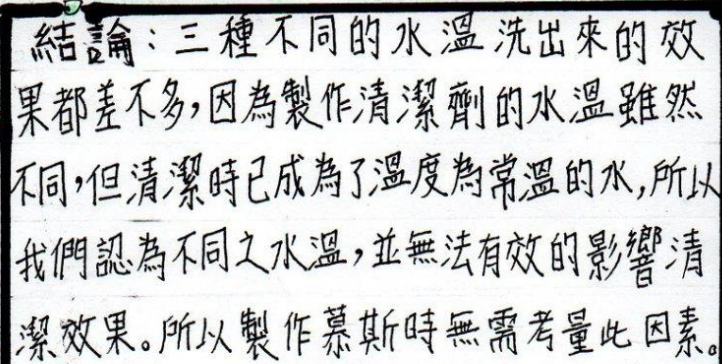 結論：三種不同的水溫洗出來的效
果都差不多，因為製作清潔劑的水溫雖然
不同，但清潔時已成為了溫度為常溫的水，所以
我們認為不同之水溫，並無法有效的影響清
潔效果。所以製作慕斯時無需考量此因素。